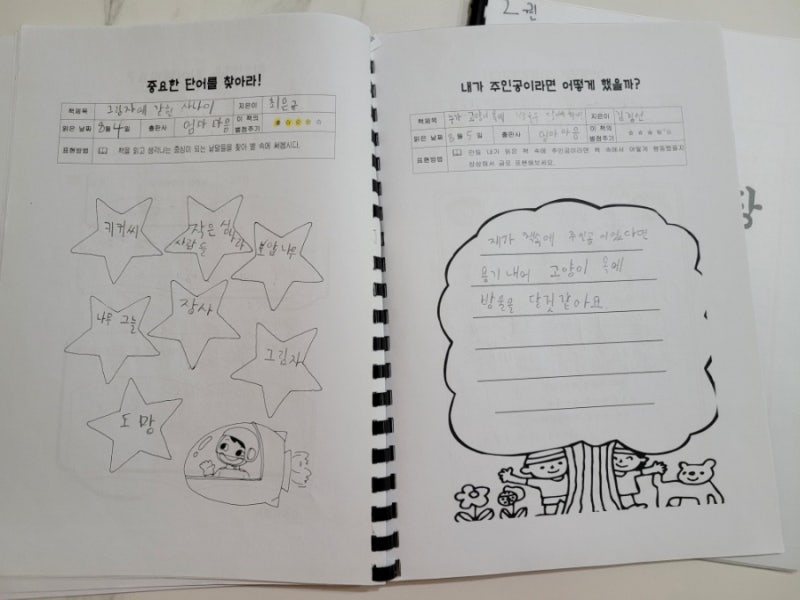 2권
중요한 단어를 찾아라!
책제목 그림자에 갇힌 사나이 지은이 최은규
읽은 날짜 8월 4일 출판사 엄마 마음 이 책의 별점주기 ★☆☆☆☆
표현방법 책을 읽고 생각나는 중심이 되는 낱말들을 찾아 별 속에 써봅시다.
키커씨
작은 사람들
심마니
보압 나무
나무 그늘
장사
그림자
도망
내가 주인공이라면 어떻게 했을까?
책제목 누가 고양이 목에 지은이 김정선
읽은 날짜 8월 5일 출판사 엄마 마음 이 책의 별점주기 ☆☆☆☆☆
표현방법 만일 내가 읽은 책 속에 주인공이라면 책 속에서 어떻게 행동했을지
상상해서 글로 표현해보세요.
제가 책속에 주인공 이었다면
용기 내어 고양이 목에
방울을 달것같아요